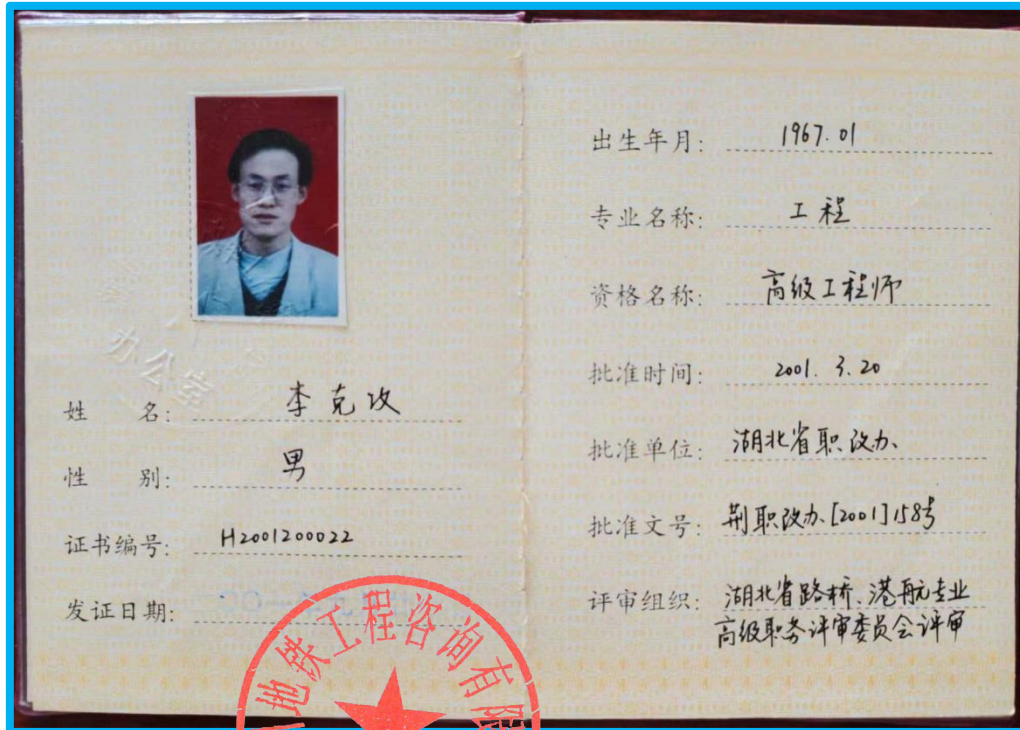 办公室
姓 名: 李克攻
性 别: 男
证书编号: H2001200022
发证日期:
地铁工程咨询有限
出生年月: 1967.01
专业名称: 工程
资格名称: 高级工程师
批准时间: 2001. 3.20
批准单位: 湖北省职改办
批准文号: 荆职改办[2001]158号
评审组织: 湖北省路桥、港航专业
高级职务评审委员会评审